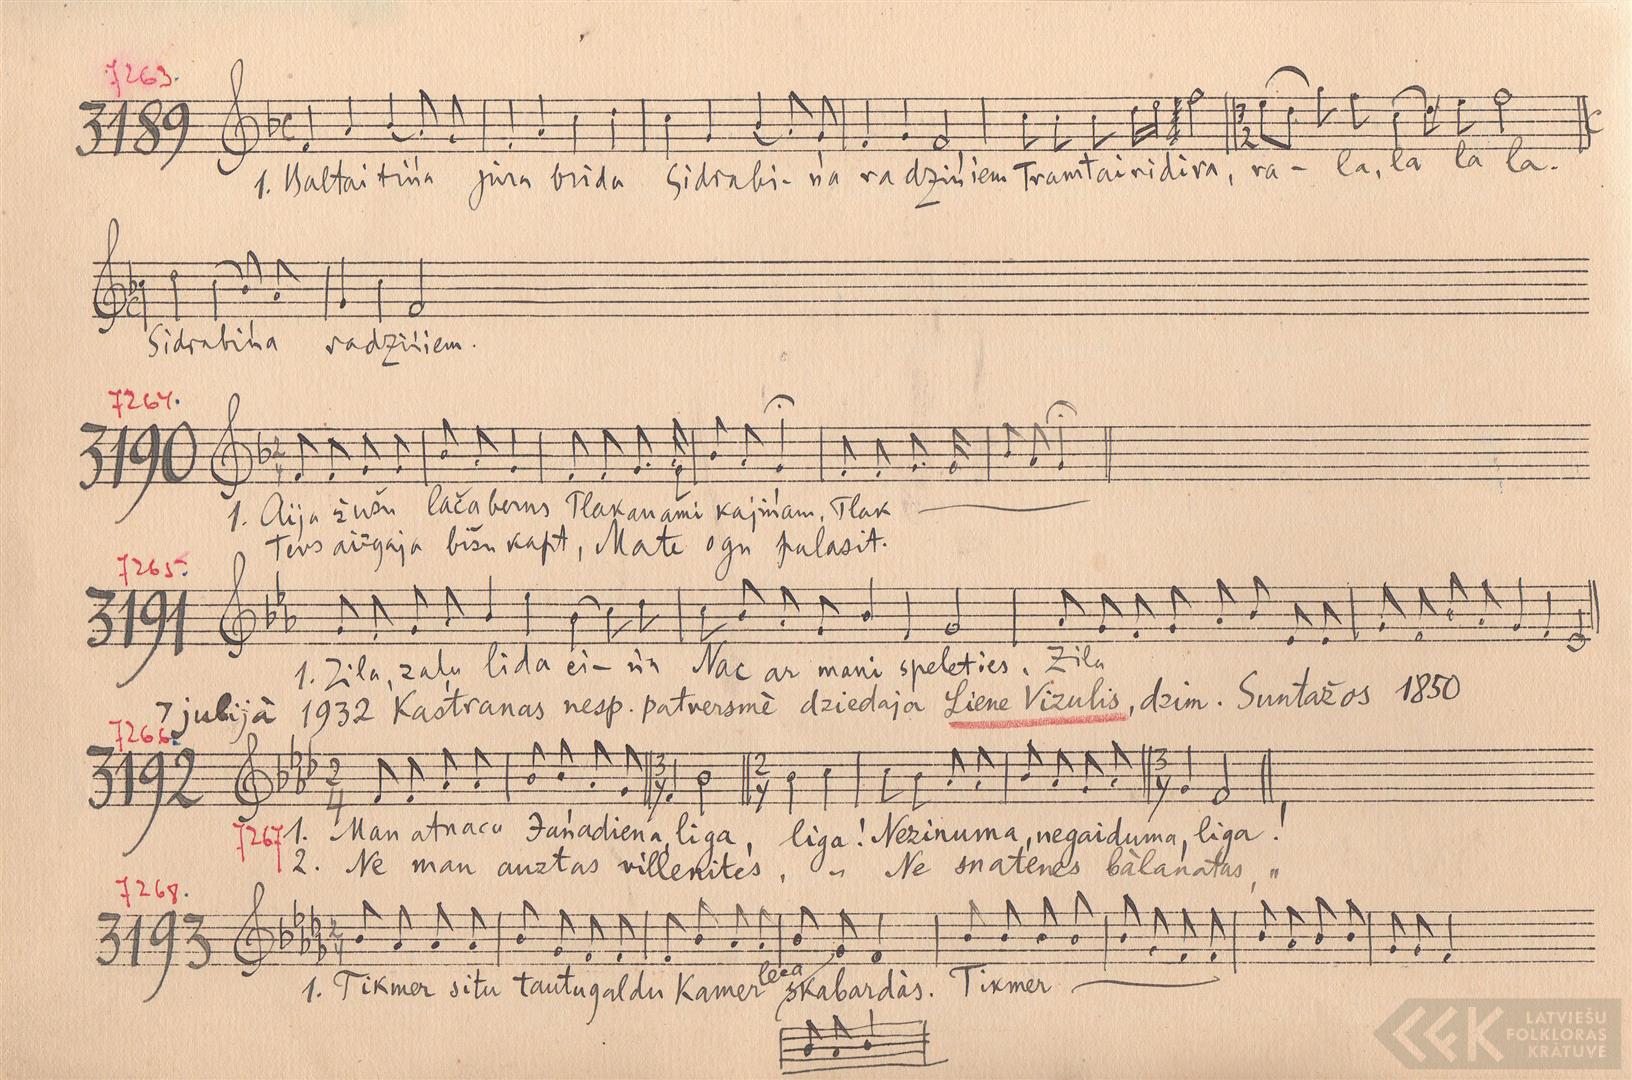 7263.
3189
1. Baltai tiņa jūra brida Sidrabi- ņa radziņiem Tramtairidira, ra - la, la la la.
Sidrabiņa radziņiem.
7264.
3190
1. Aija žužu lača berns Tlakanami kajiņam, Tlak
Tevs aizgaja bišu kapt, Mate ogu palasit.
7265.
3191
1. Zila, zaļu lida ei- ņa Nac ar mani speleties. Zilu
7 julijā 1932 Kastranas nesp. patversmē dziedaja Liene Vizulis, dzim. Suntažos 1850
7266.
3192
1. Man atnaca Jaņadiena, liga, liga! Nezinuma, negaiduma, liga!
7267 2. Ne man auztas villenites, „ Ne snatenes bālanatas, „
7268.
3193
1. Tikmer situ tautu galdu Kamer leca skabardās. Tikmer
LATVIEŠU
FOLKLORAS
KRĀTUVE